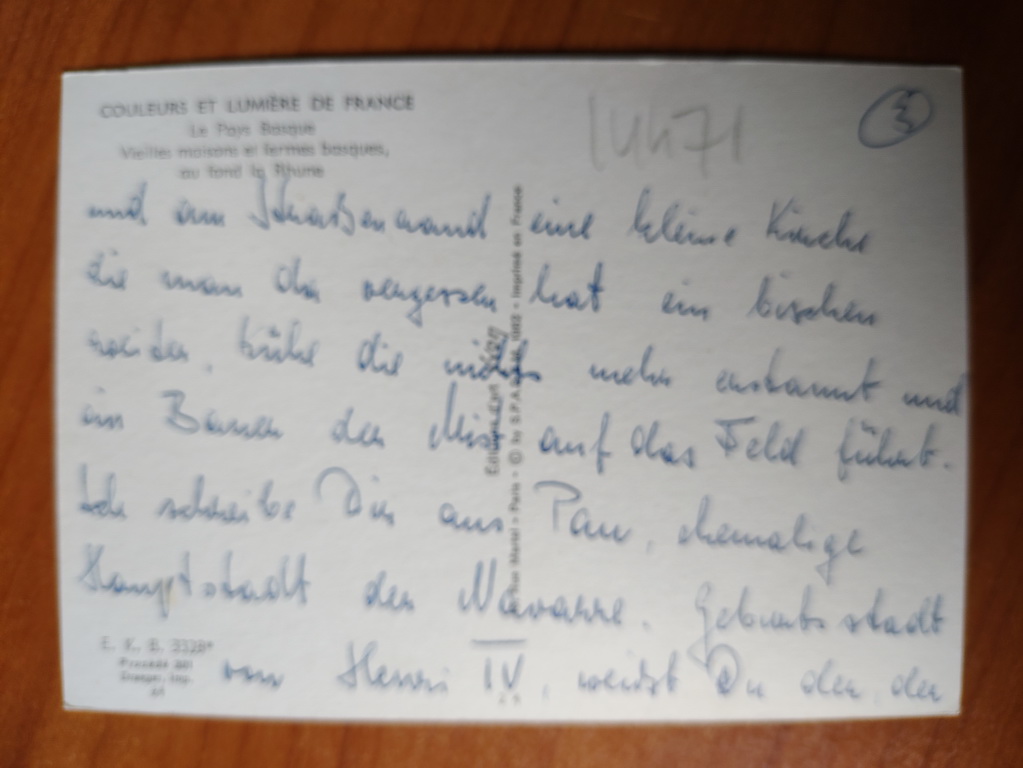 COULEURS ET LUMIÈRE DE FRANCE
Le Pays Basque
Vieilles maisons et fermes basques,
au fond la Rhune
14471
3
und am Strassenrand eine kleine Kirche
die man da vergessen hat ein bischen
weiter, Kühe die nichts mehr erstaunt und
ein Bauer der Mist auf das Feld führt.
Ich schreibe Dir aus Pau, ehemalige
Hauptstadt der Navarre. Geburtsstadt
von Henri IV, weisst Du der, der
- Paris - © by S.P.A.D.E.M. - Imprimé en France
E. K. B. 332B*
Procédé 301
Draeger, imp.